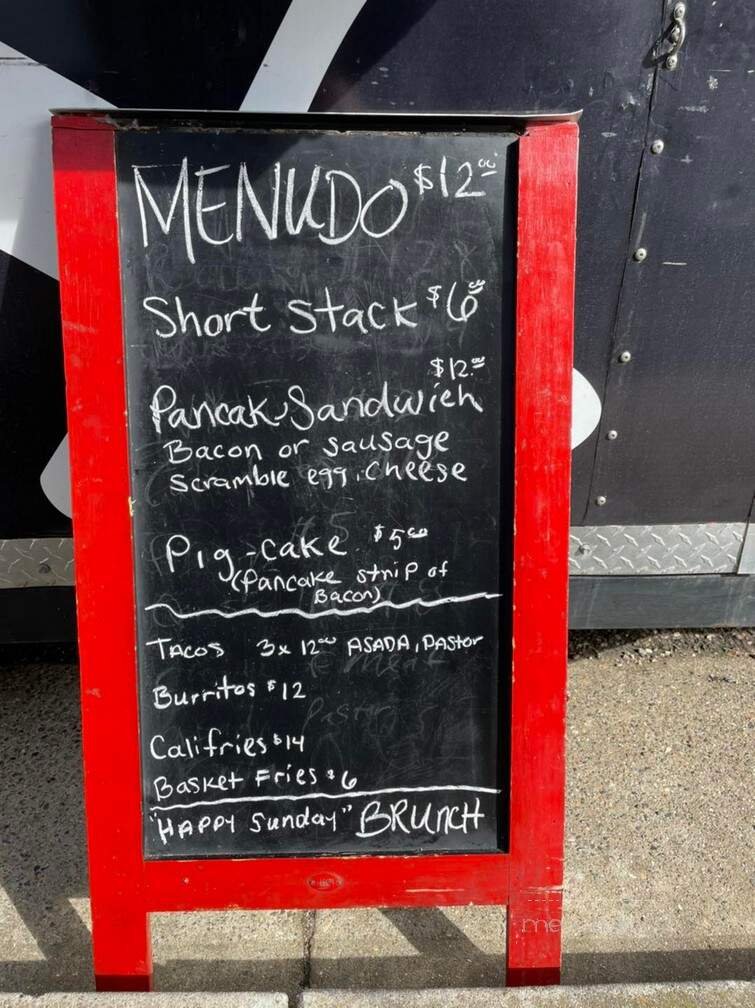 MENUDO $12.00
Short Stack $6.00
$12.00
Pancake Sandwich
Bacon or sausage
Scramble egg, cheese
Pig-cake $5.00
(Pancake strip of
Bacon)
Tacos 3x 12.00 ASADA, PAstor
Burritos $12
Califries $14
Basket Fries $6
"HAPPY Sunday" BRUnCH